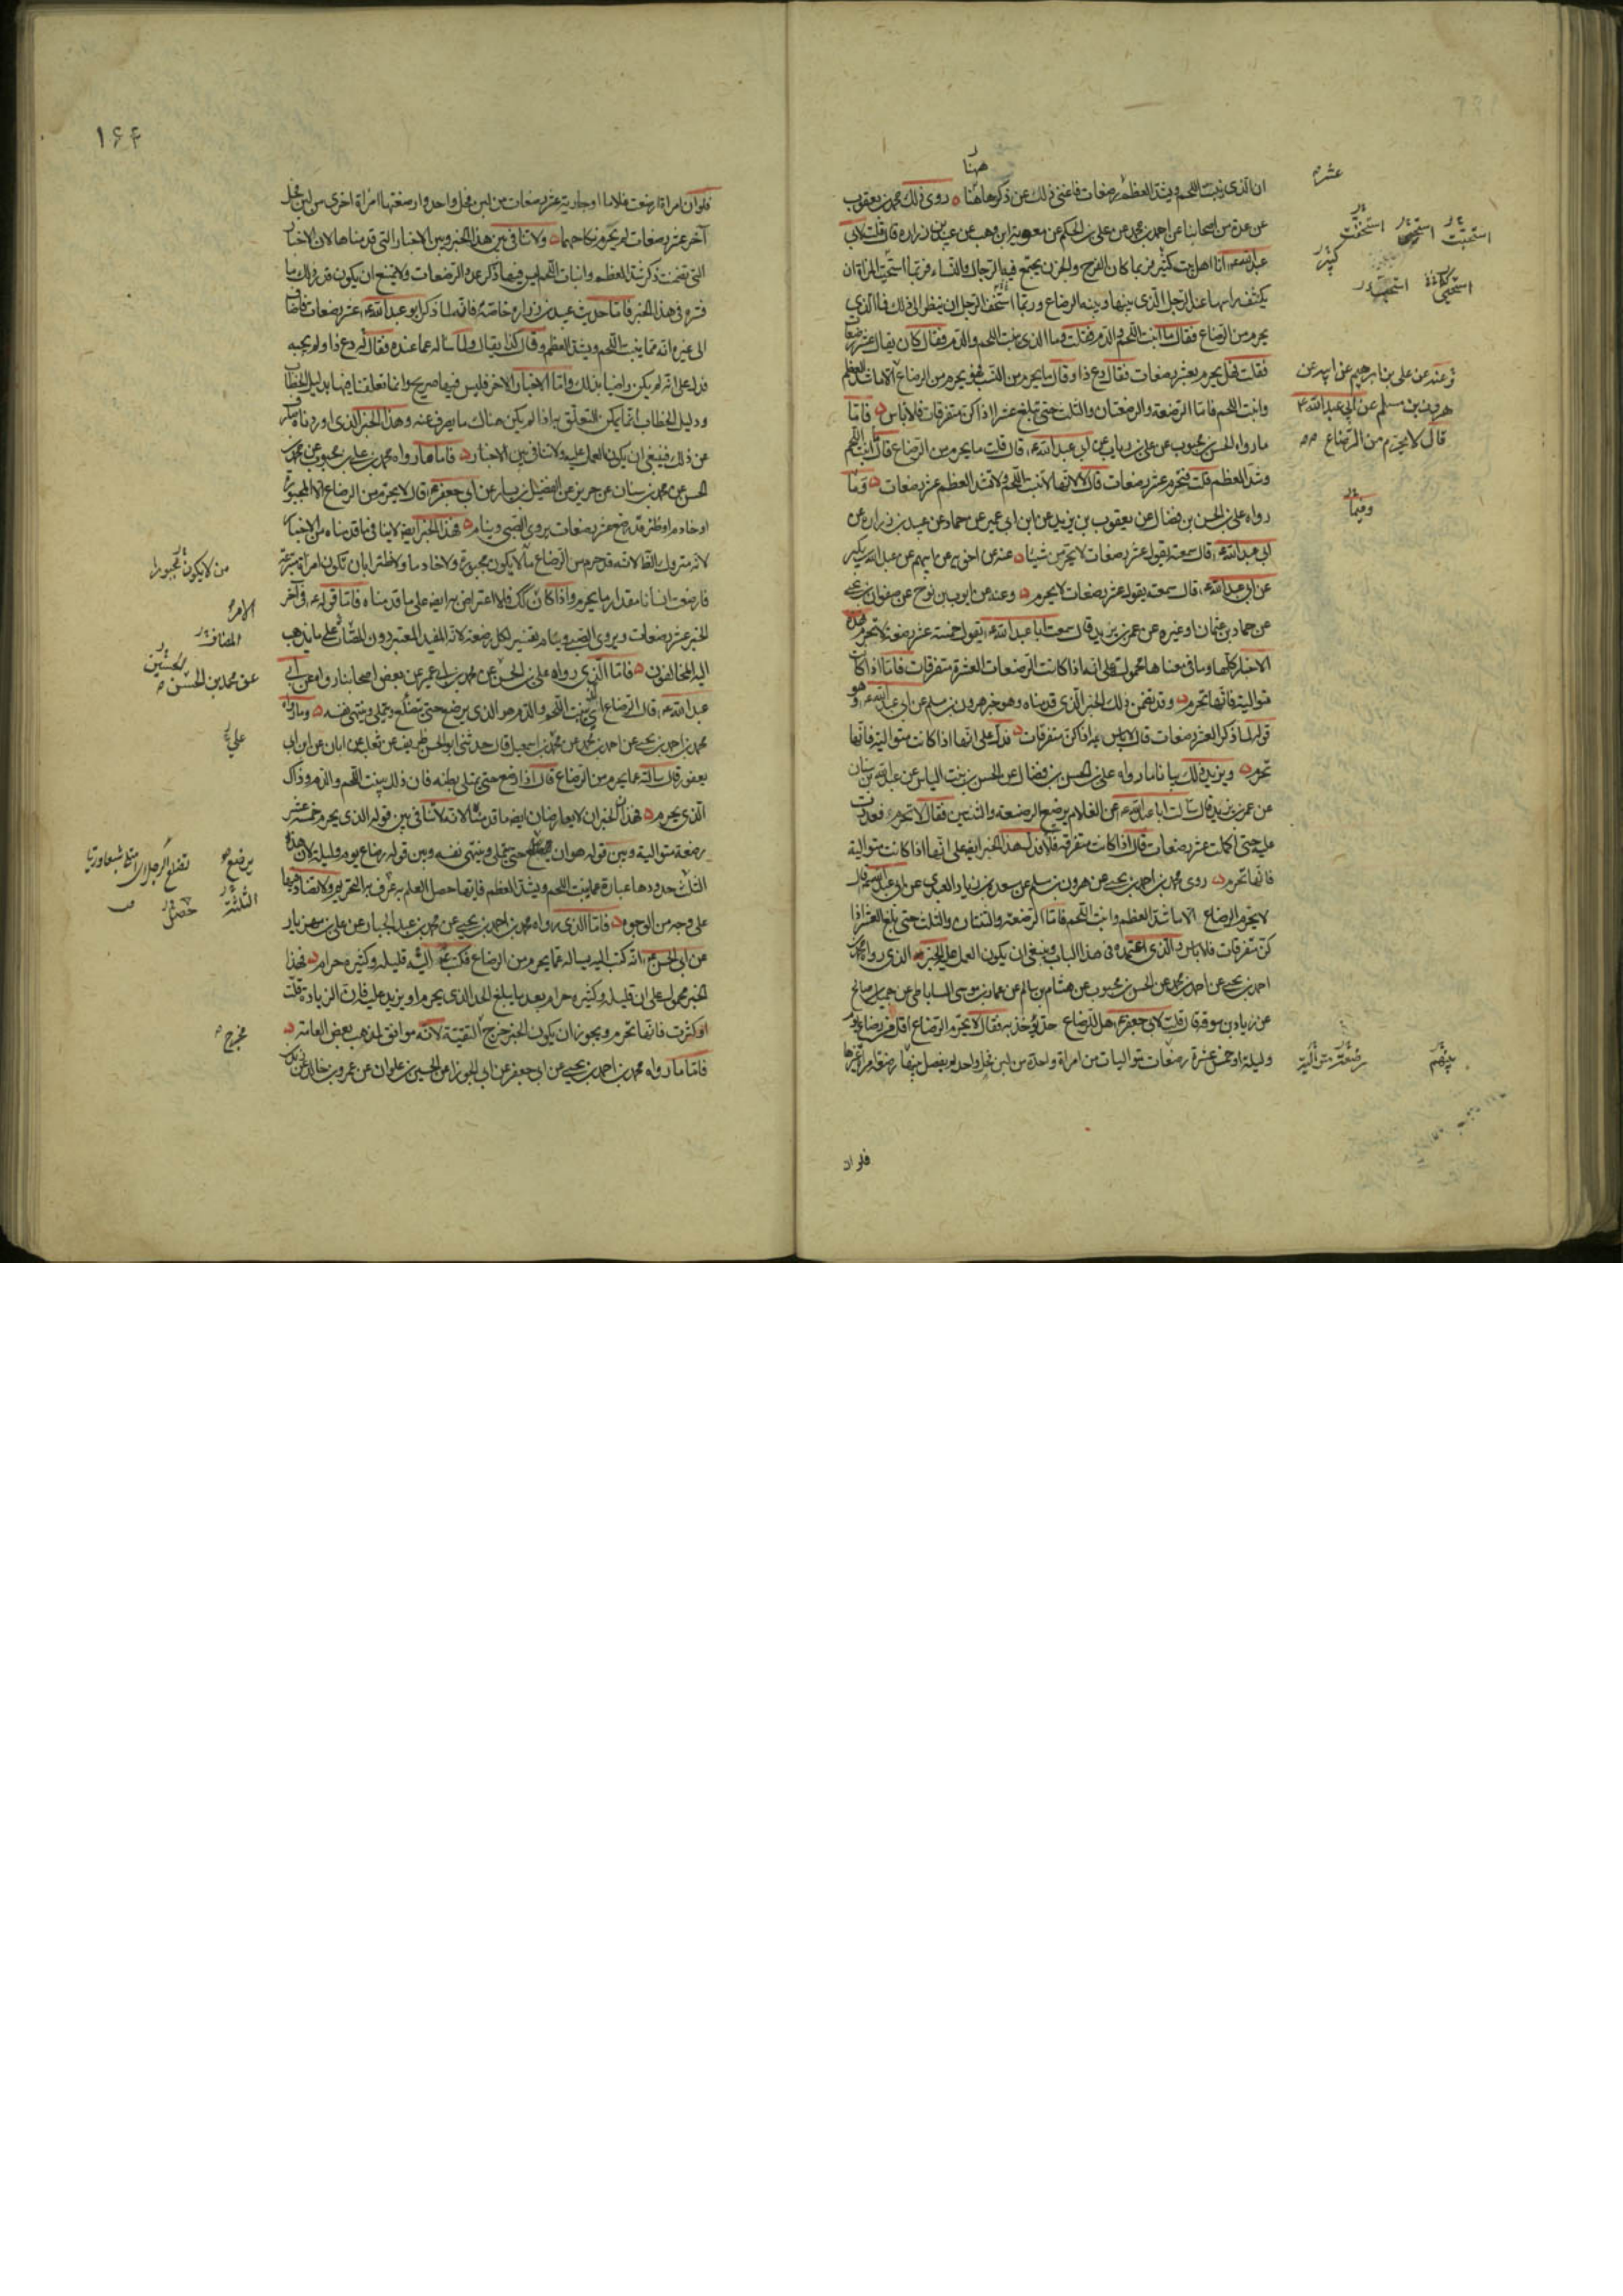 ههنا
ان الذي ينبت اللحم ويشد العظم رضعات فاغنى ذلك عن ذكرها هاهنا روى ذلك محمد بن يعقوب
عن عدة من اصحابنا عن احمد بن محمد عن علي بن الحكم عن معوية بن وهب عن عبيد بن زرارة قال قلت لابي
عبد الله ع انا اهل بيت كثير فربما كان الفرح والحزن يجتمع فيه الرجال والنساء فربما استحيت المراة ان
يكشف راسها عند الرجل الذي بينها وبينه الرضاع وربما استخف الرجل ان ينظر الى ذلك فما الذي
يحرم من الرضاع فقال ما انبت اللحم والدم فقلت وما الذي ينبت اللحم والدم فقال كان يقال عشر رضعات
فقلت فهل يحرم بعشر رضعات فقال دع ذا وقال ما يحرم من النسب فهو يحرم من الرضاع الا ما شد العظم
وانبت اللحم فاما الرضعة والرضعتان والثلث حتى تبلغ عشرا اذا كن متفرقات فلا باس فاما
ما رواه الحسن بن محبوب عن علي بن رياب عن ابي عبد الله ع قال قلت ما يحرم من الرضاع قال ما انبت اللحم
وشد العظم قلت فتحرم عشر رضعات قال لا لانها لا تنبت اللحم ولا تشد العظم عشر رضعات وما
رواه علي بن الحسن بن فضال عن يعقوب بن يزيد عن ابن ابي عمير عن حماد عن عبيد بن زرارة عن
ابي عبد الله ع قال سمعته يقول عشر رضعات لا يحرمن شيئا عنه عن اخويه عن ابيهما عن عبد الله بن بكير
عن ابي عبد الله ع قال سمعته يقول عشر رضعات لا يحرم وعنه عن ايوب بن نوح عن صفوان بن يحيى
عن حماد بن عثمان او غيره عن عمر بن يزيد قال سمعت ابا عبد الله ع يقول خمسة عشر رضعة لا تحرم فهذه
الاخبار كلها وما في معناها محمولة على انه اذا كانت الرضعات العشرة متفرقات فاما اذا كانت
متوالية فانها تحرم وقد تضمن ذلك الخبر الذي قدمناه وهو خبر هرون بن مسلم عن ابي عبد الله ع وهو
قوله لما ذكر العشر رضعات قال لا باس به اذا كن متفرقات فدل على انها اذا كانت متوالية فانها
تحرم ويزيد ذلك بيانا ما رواه علي بن الحسن بن فضال عن الحسن بن بنت الياس عن عبد الله بن سنان
عن عمر بن يزيد قال سالت ابا عبد الله ع عن الغلام يرضع الرضعة والثنتين فقال لا تحرم فعددت
عليه حتى اكملت عشر رضعات قال اذا كانت متفرقة فلا فدل هذا الخبر ايضا على انها اذا كانت متوالية
فانها تحرم روى محمد بن احمد بن يحيى عن هرون بن مسلم عن مسعدة بن زياد العبدي عن ابي عبد الله ع قال
لا يحرم الرضاع الا ما شد العظم وانبت اللحم فاما الرضعة والثنتان والثلث حتى بلغ العشر اذا
كن متفرقات فلا باس والذي اعتمده في هذا الباب وينبغي ان يكون العمل عليه الخبر الذي رواه محمد بن
احمد بن يحيى عن احمد بن محمد عن الحسن بن محبوب عن هشام بن سالم عن عمار بن موسى الساباطي عن جميل بن صالح
عن زياد بن سوقة قال قلت لابي جعفر ع هل للرضاع حد يؤخذ به فقال لا يحرم الرضاع اقل من رضاع يوم
وليلة او خمس عشرة رضعات متواليات من امراة واحدة من لبن فحل واحد لم يفصل بينها رضعة امراة غيرها
فلو ان
عشر
استحيت
استخفت
كثير
وعنه عن علي بن ابرهيم عن ابيه عن
هرون بن مسلم عن ابي عبد الله ع
قال لا يحرم من الرضاع
رضعة متوالية
بينهم
١۶۴
فلو ان امراة ارضعت غلاما او جارية عشر رضعات من لبن فحل واحد وارضعتها امراة اخرى من لبن فحل
آخر عشر رضعات لم يحرم نكاحهما ولا تنافي بين هذا الخبر وبين الاخبار التي قدمناها لان الاخبار
التي تضمنت ذكر شد العظم وانبات اللحم ليس فيها ذكر عدد الرضعات ولا يمتنع ان يكون قدر ذلك ما
فسره في هذا الخبر فاما حديث عبيد بن زرارة خاصة فانه لما ذكر ابو عبد الله ع عشر رضعات فاضاف
الى غيره انه مما ينبت اللحم ويشد العظم وقال كذا يقال ولما ساله عما عنده فقال له دع ذا ولم يجبه
فدل على انه لم يكن راضيا بذلك واما الاخبار الاخر فليس فيها صريح وانما تعلقنا فيها بدليل الخطاب
ودليل الخطاب انما يمكن التعلق به اذا لم يكن هناك ما يصرف عنه وهذا الخبر الذي اوردناه يصرف
عن ذلك فينبغي ان يكون العمل عليه ولا تنافي بين الاخبار فاما ما رواه محمد بن علي بن محبوب عن محمد بن
الحسن عن محمد بن سنان عن حريز عن الفضيل بن يسار عن ابي جعفر ع قال لا يحرم من الرضاع الا المجبورة
او خادم او ظئر قد رضع عشر رضعات يروى الصبي وينام فهذا الخبر ايضا لا ينافي ما قدمناه من الاخبار
لانه متروك بالظاهر لانه قد حرم من الرضاع ما لا يكون مجبورة ولا خادما ولا ظئرا بان تكون امراة متبرعة
فارضعت انسانا مقدار ما يحرم واذا كان كك فلا اعتراض به ايضا على ما قدمناه فاما قوله ع في آخر
الخبر عشر رضعات ويروى الصبي وينام تفسير لكل رضعة لانه المفيد المعتبر دون المصات على ما يذهب
اليه المخالفون فاما الذي رواه علي بن الحسن عن محمد بن ابي عمير عن بعض اصحابنا رواه عن ابي
عبد الله ع قال الرضاع الذي ينبت اللحم والدم هو الذي يرضع حتى يتضلع ويتملى وينتهي نفسه وما رواه
محمد بن احمد بن يحيى عن احمد بن محمد عن محمد بن اسمعيل قال حدثني ابو الحسن ظريف عن ثعلبة عن ابان عن ابن ابي
يعفور قال سالته عما يحرم من الرضاع قال اذا رضع حتى يمتلي بطنه فان ذلك ينبت اللحم والدم وذاك
الذي يحرم فهذان الخبران لا يعارضان ايضا ما قدمناه لانه لا تنافي بين قوله الذي يحرم خمسة عشر
رضعة متوالية وبين قوله هو ان يتضلع حتى يتملى وينتهي نفسه وبين قوله رضاع يوم وليلة لان هذه
الثلث حدودها عبارة عما ينبت اللحم ويشد العظم فايها حصل العلم به عرف به التحريم ولا تضاد فيها
على وجه من الوجوه فاما الذي رواه محمد بن احمد بن يحيى عن محمد بن عبد الجبار عن علي بن مهزيار
عن ابي الحسن ع انه كتب اليه يساله عما يحرم من الرضاع فكتب اليه قليله وكثيره حرام فهذا
الخبر محمول على ان قليله وكثيره حرام بعد ما يبلغ الحد الذي يحرم او يزيد عليه فان الزيادة قلت
او كثرت فانها تحرم ويجوز ان يكون الخبر خرج التقية لانه موافق لمذهب بعض العامة
فاما ما رواه محمد بن احمد بن يحيى عن ابي جعفر عن ابي الجوزا عن الحسين بن علوان عن عمرو بن خالد عن زيد بن
من لا يكون مجبورا
عن محمد بن الحسن
علي
يرضع
الثلثة
حصل
مخرج